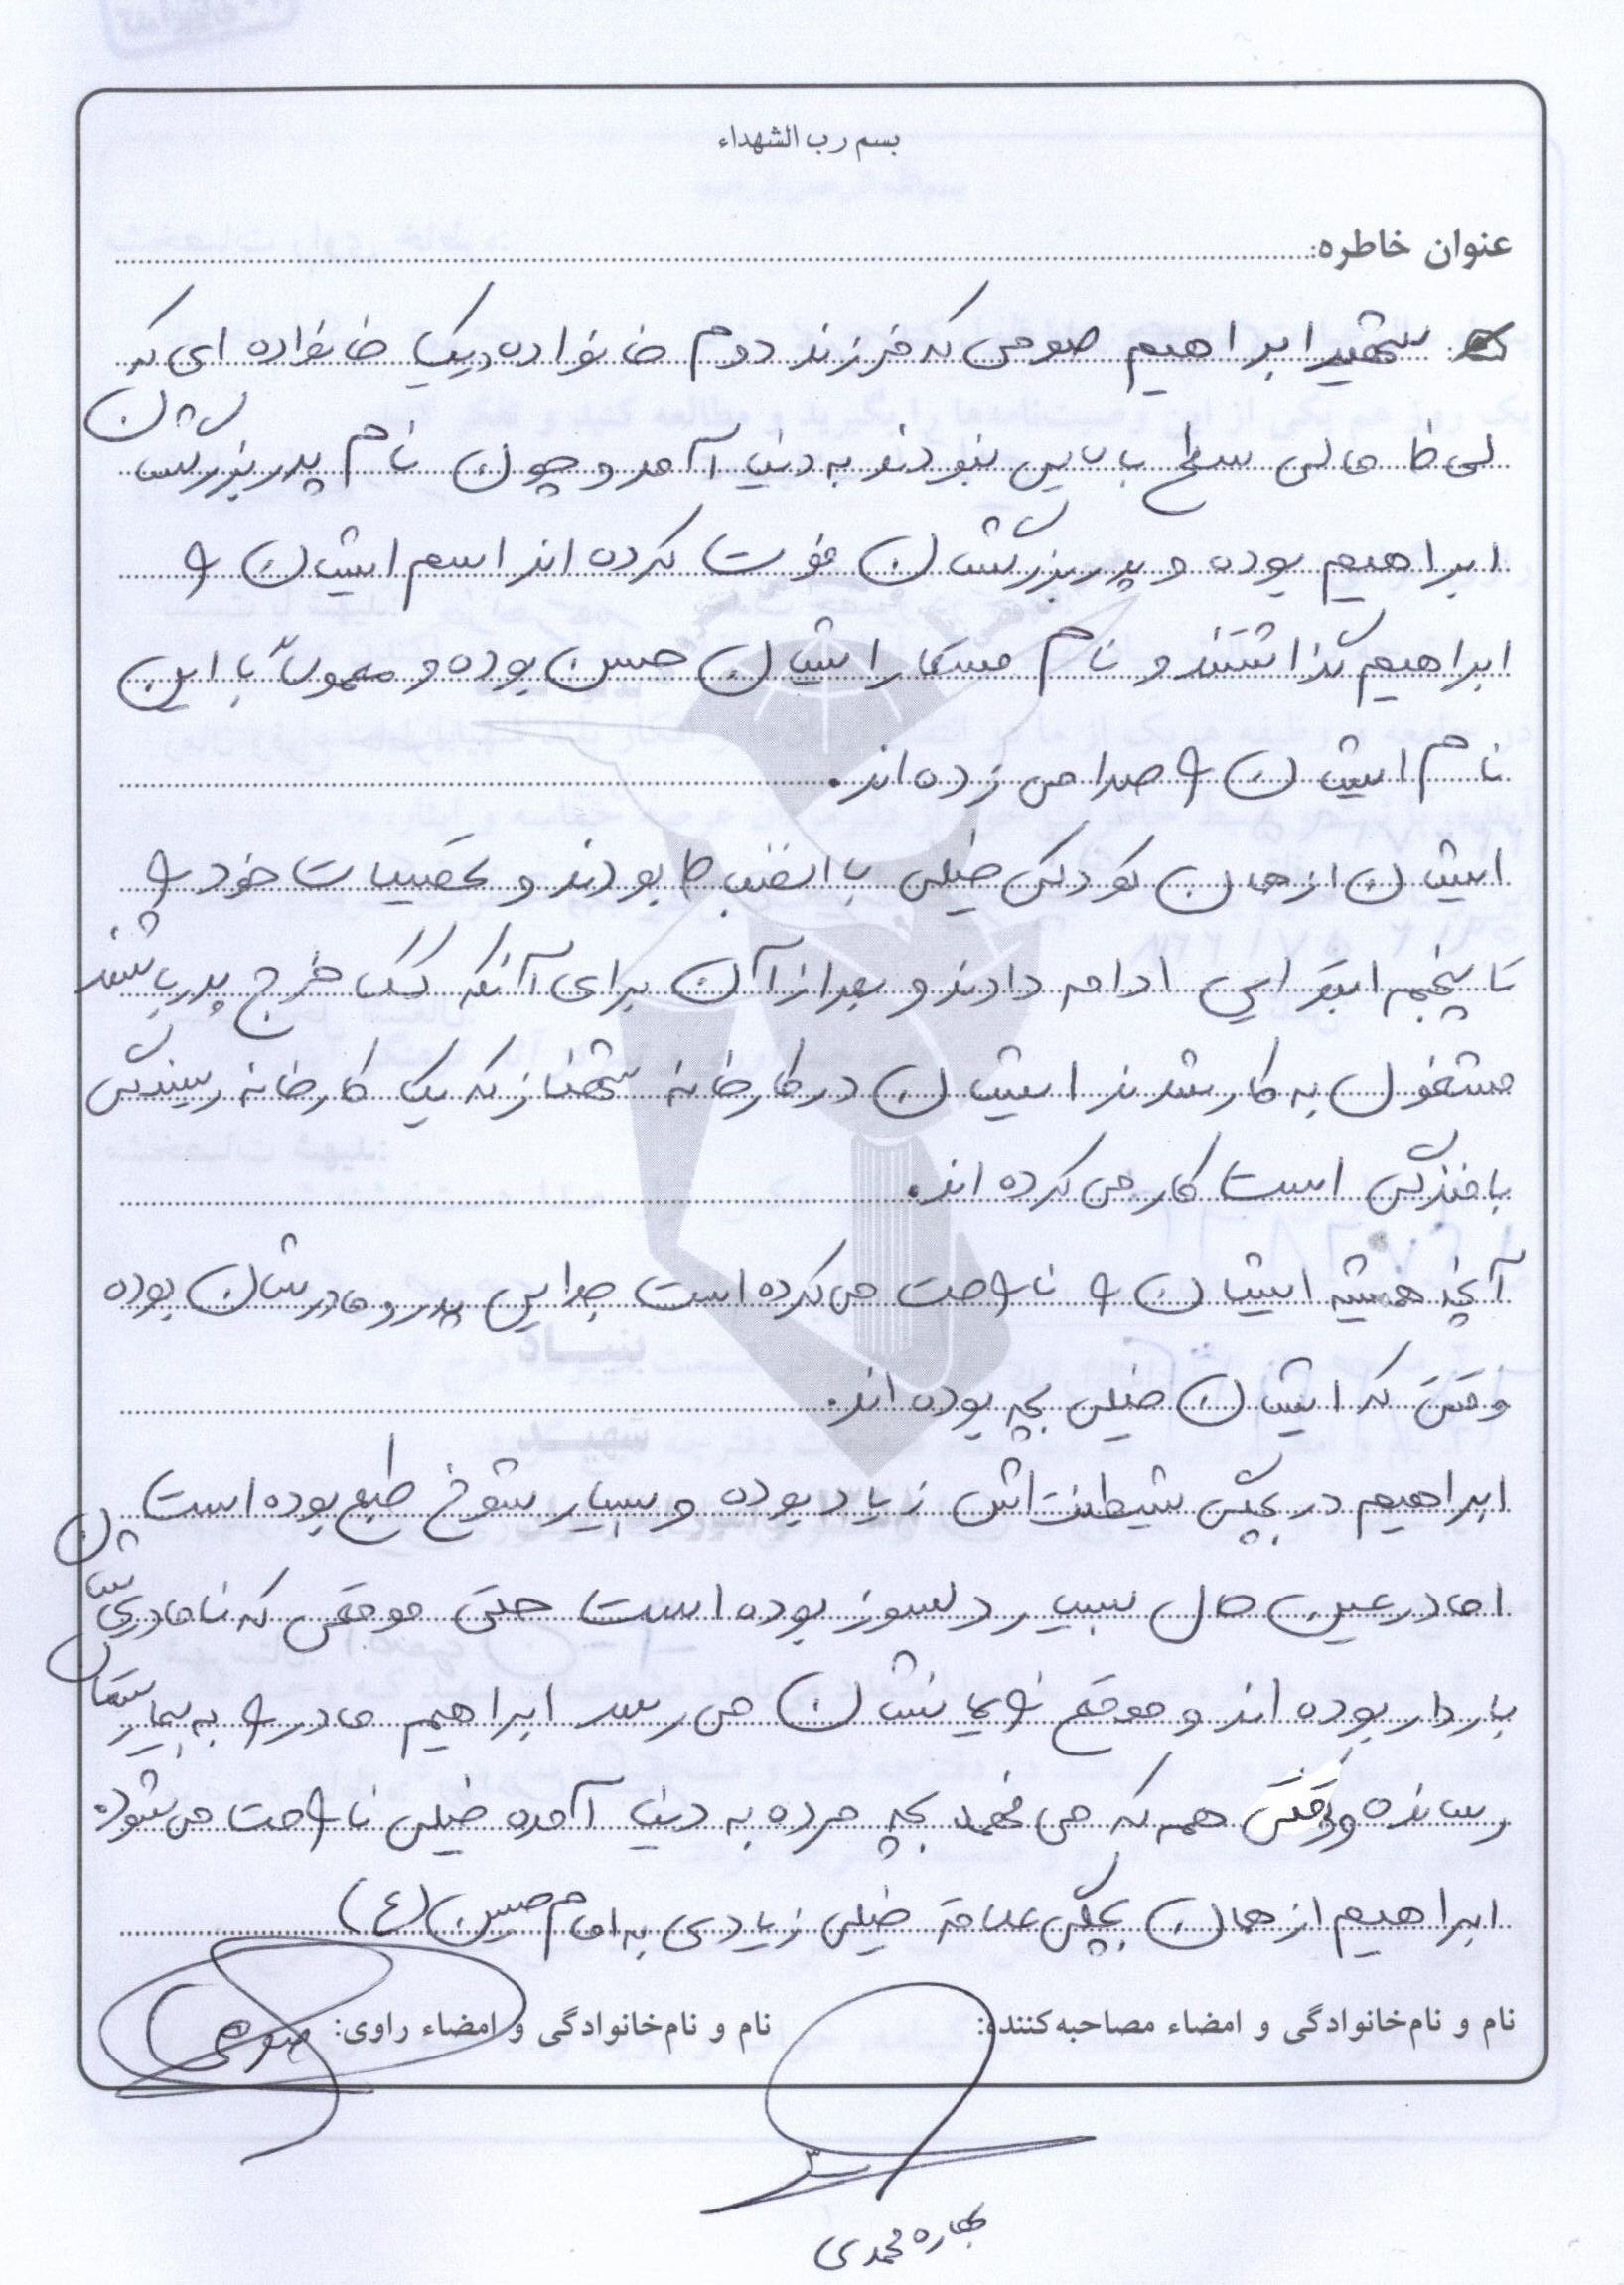 بسم رب الشهداء
عنوان خاطره:
شهید ابراهیم صومی که فرزند دوم خانواده در یک خانواده ای که
لحاظ مالی سطح بالایی نبودند به دنیا آمد و چون نام پدربزرگشان
ابراهیم بوده و پدربزرگشان فوت کرده اند اسم ایشان را
ابراهیم گذاشتند و نام مستعار ایشان حسن بوده و معمولاً با این
نام ایشان را صدا می زده اند.
ایشان از همان کودکی خیلی با انضباط بودند و تحصیلات خود را
تا پنجم ابتدایی ادامه دادند و بعد از آن برای آنکه کمک خرج پدر باشند
مشغول به کار شدند ایشان در کارخانه شهناز که یک کارخانه ریسندگی
بافندگی است کار می کرده اند.
آنچه همیشه ایشان را ناراحت می کرده است جدایی پدر و مادرشان بوده
وقتی که ایشان خیلی بچه بوده اند.
ابراهیم در بچگی شیطنت اش زیاد بوده و بسیار شوخ طبع بوده است
اما در عین حال بسیار دلسوز بوده است حتی موقعی که نامادری شان
باردار بوده اند و موقع زایمانشان می رسد ابراهیم مادر را به بیمارستان
رسانده و وقتی همه که می فهمد بچه مرده به دنیا آمده خیلی ناراحت می شود.
ابراهیم از همان بچگی علاقه خیلی زیادی به امام حسین (ع)
نام و نام‌خانوادگی و امضاء مصاحبه‌کننده:
نام و نام‌خانوادگی و امضاء راوی: صومی
بهاره محمدی